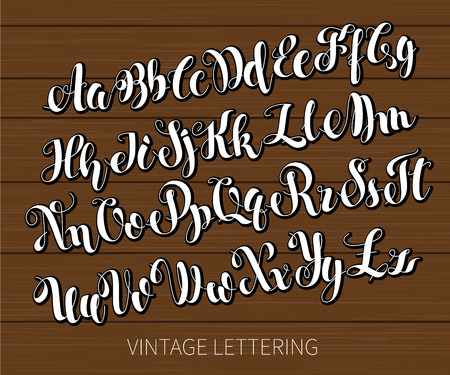 Aa Bb Cc Dd Ee Ff Gg
Hh Ii Jj Kk Ll Mm
Nn Oo Pp Qq Rr Ss Tt
Uu Vv Ww Xx Yy Zz
VINTAGE LETTERING